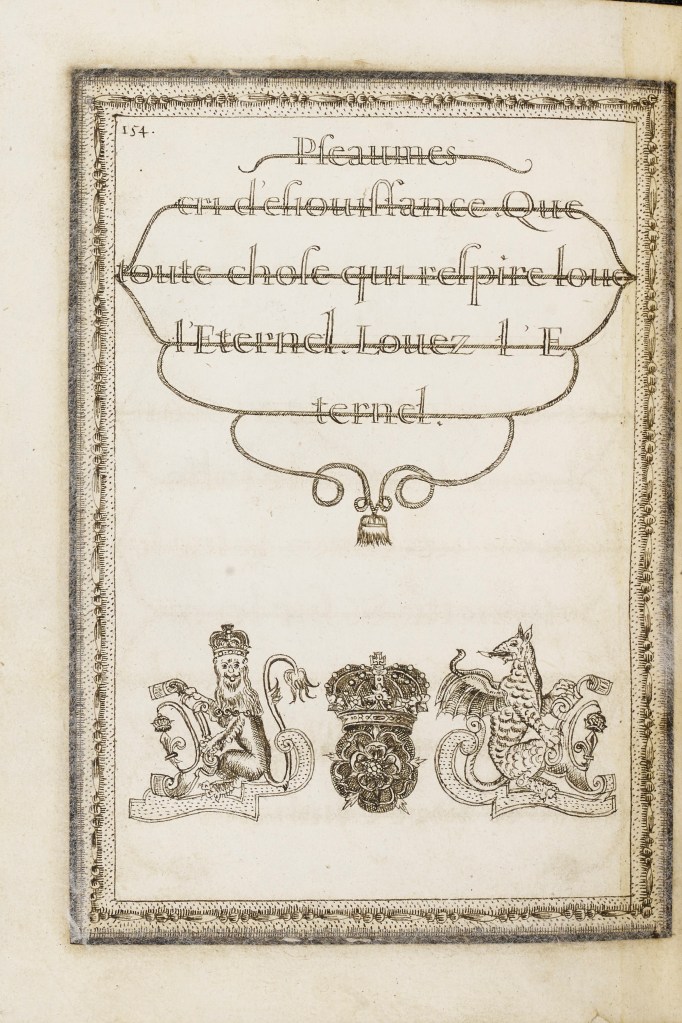 154.
Pſeaumes
cri d'eſiouiſſance. Que
toute choſe qui reſpire loue
l'Eternel. Louez l'E
ternel.